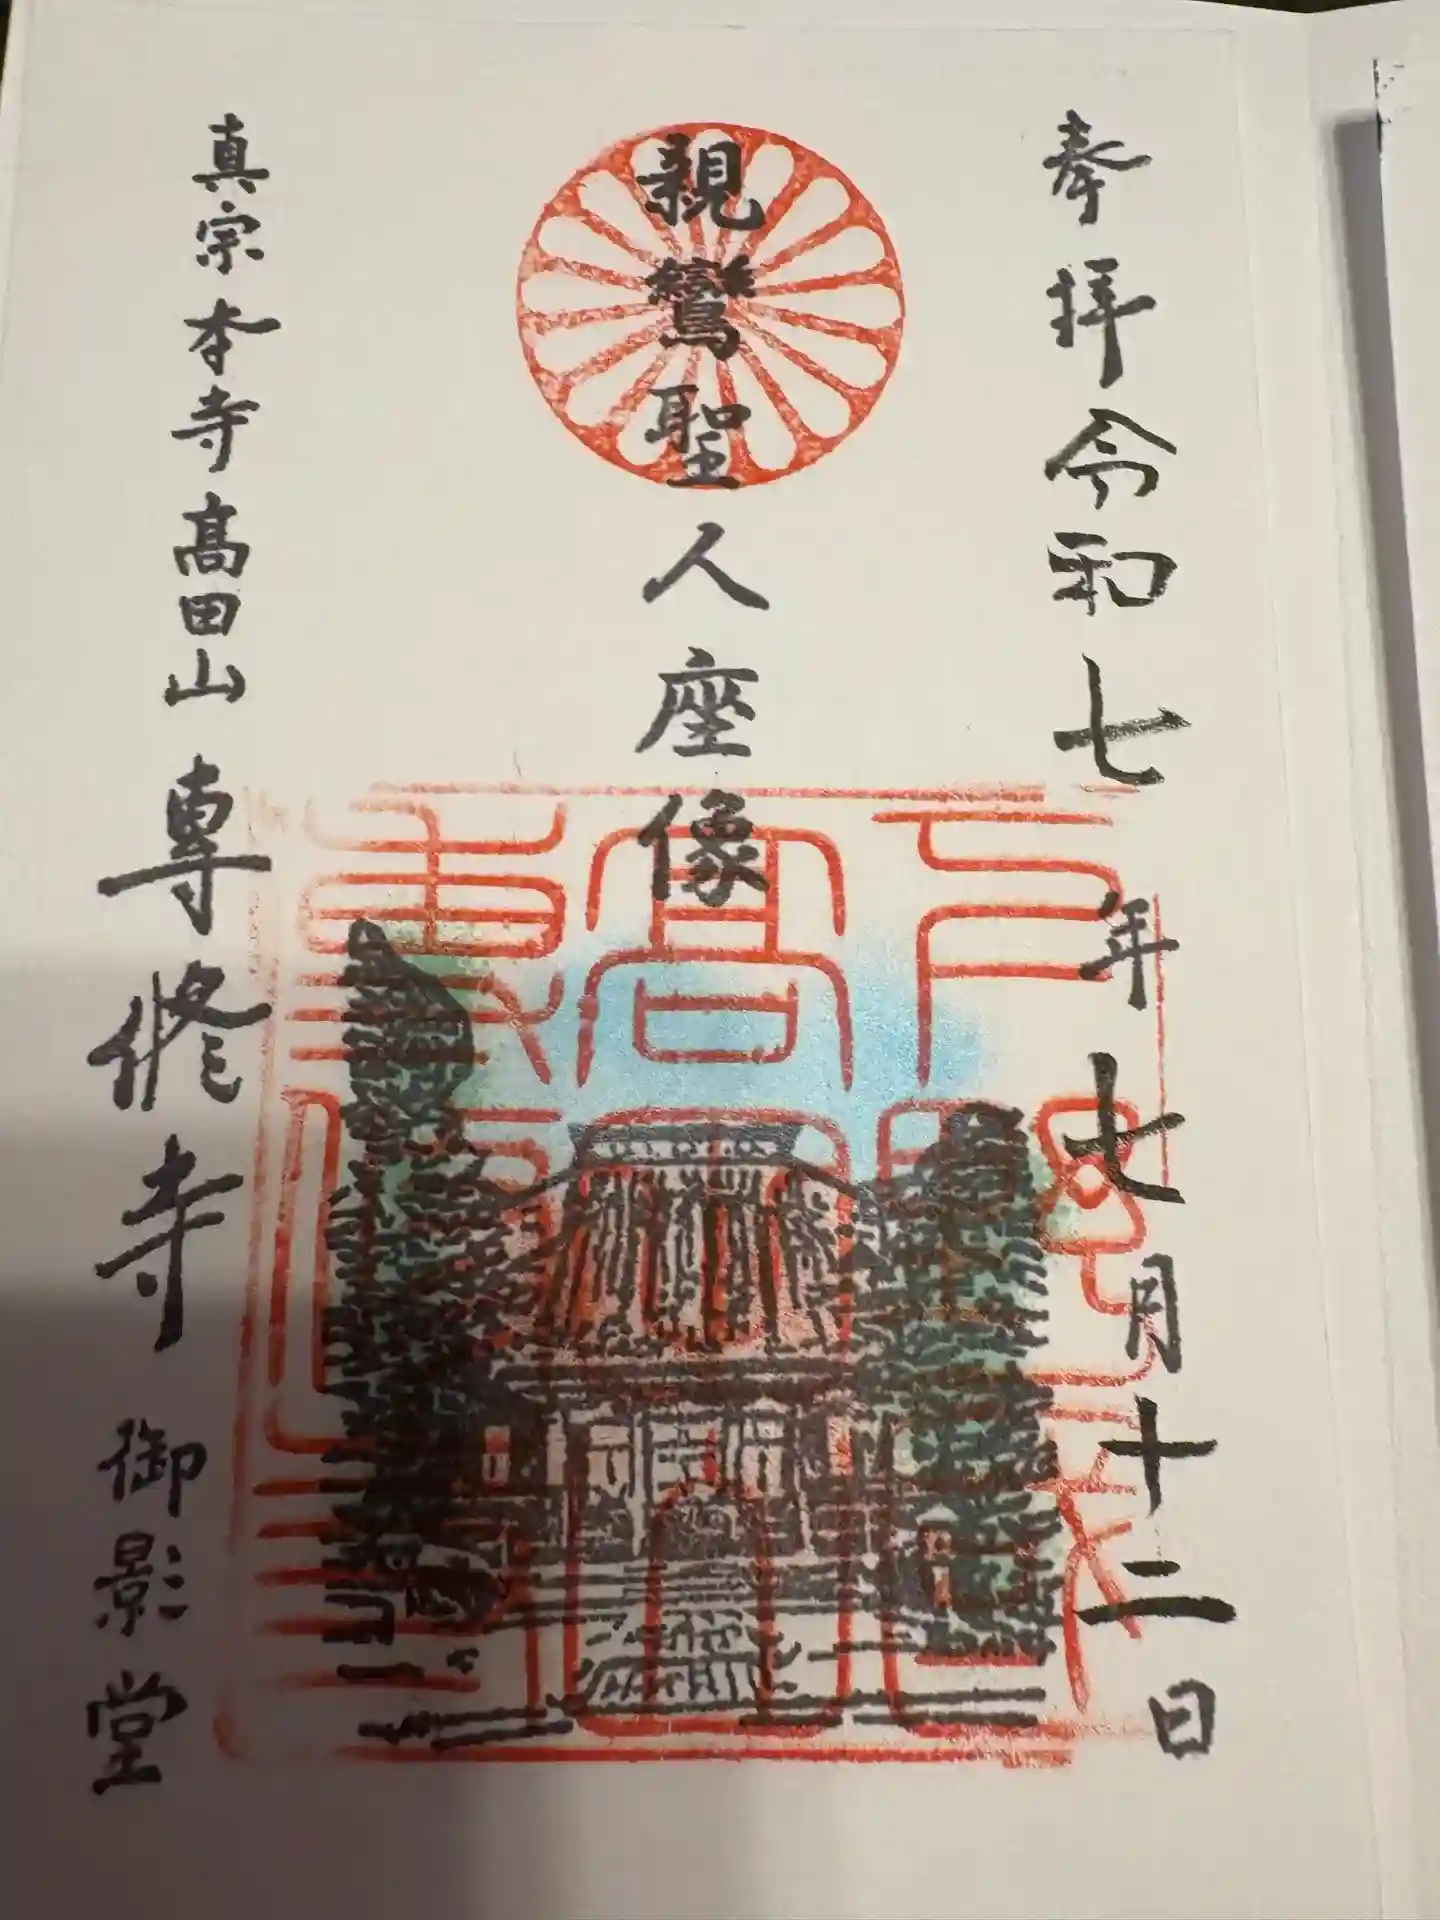 奉拝 令和七年七月十二日
親鸞聖人座像
真宗本寺高田山 専修寺 御影堂